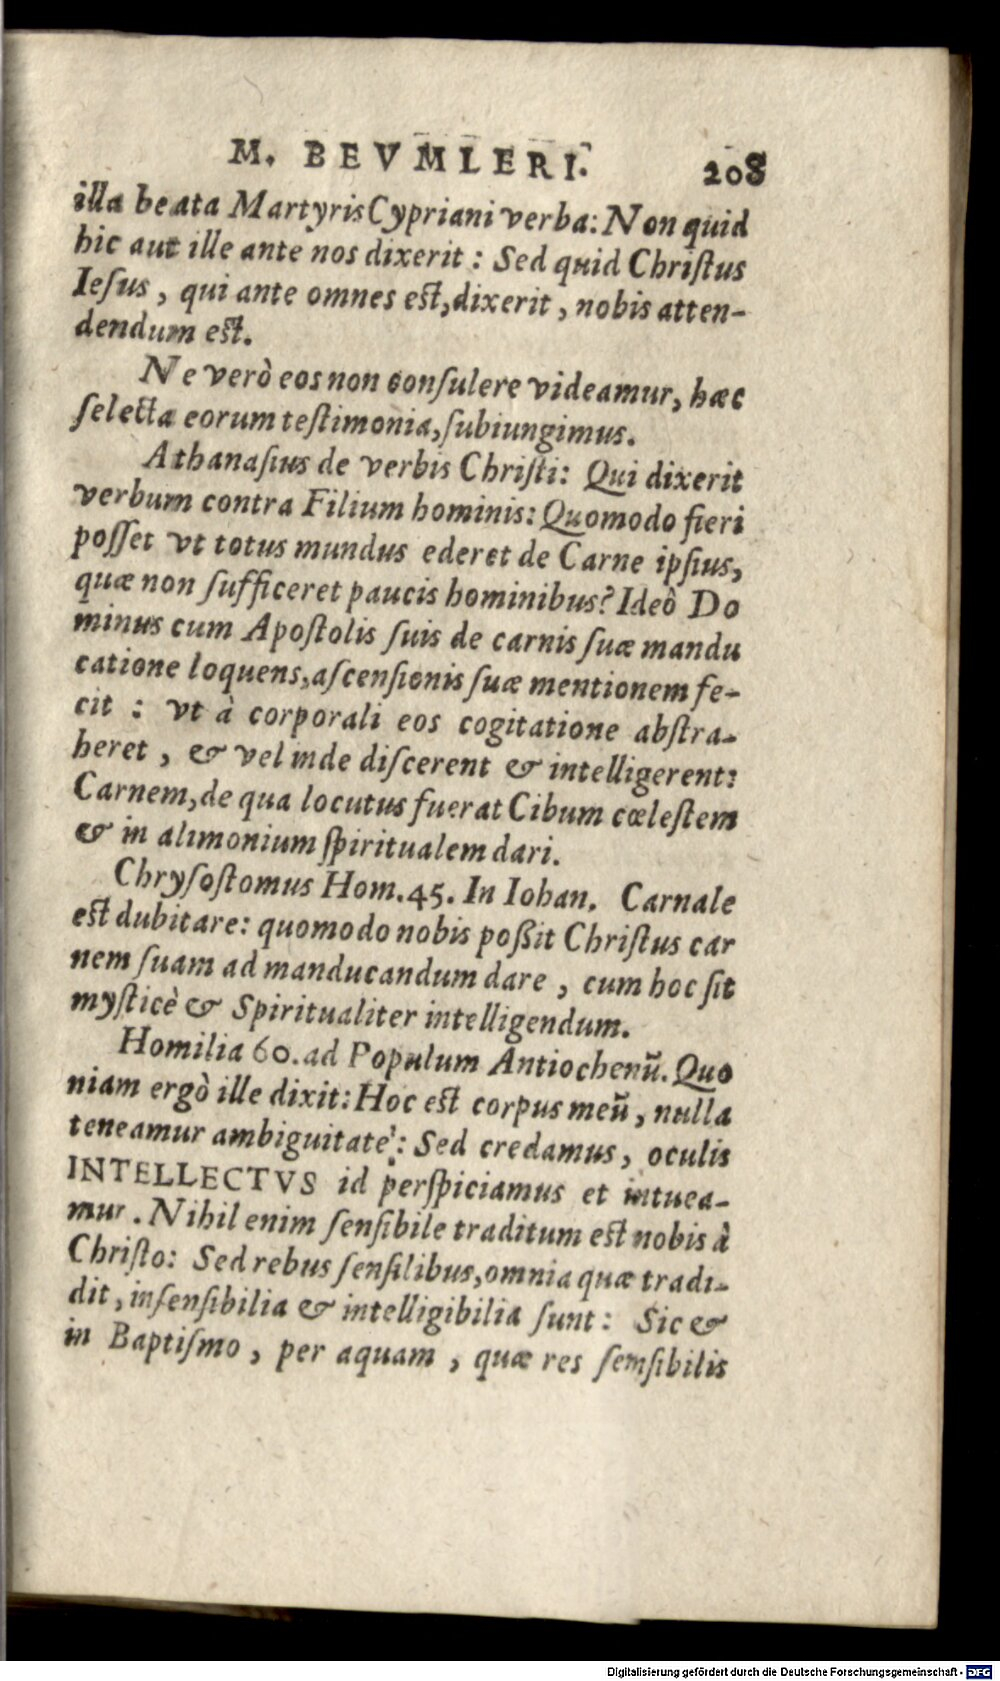 M. BEVMLERI. 208
illa beata Martyris Cypriani verba: Non quid
hic aut ille ante nos dixerit : Sed quid Chriſtus
Ieſus , qui ante omnes eſt, dixerit , nobis atten-
dendum eſt.
Ne verò eos non conſulere videamur, hæc
ſelecta eorum teſtimonia, ſubiungimus.
Athanaſius de verbis Chriſti: Qui dixerit
verbum contra Filium hominis: Quomodo fieri
poſſet vt totus mundus ederet de Carne ipſius,
quæ non ſufficeret paucis hominibus? Ideò Do
minus cum Apoſtolis ſuis de carnis ſuæ mandu
catione loquens, aſcenſionis ſuæ mentionem fe-
cit : vt à corporali eos cogitatione abſtra-
heret , & vel inde diſcerent & intelligerent:
Carnem, de qua locutus fuerat Cibum cœleſtem
& in alimonium ſpiritualem dari.
Chryſoſtomus Hom. 45. In Iohan. Carnale
eſt dubitare: quomodo nobis poßit Chriſtus car
nem ſuam ad manducandum dare , cum hoc ſit
myſticè & Spiritualiter intelligendum.
Homilia 60. ad Populum Antiochenũ. Quo
niam ergò ille dixit: Hoc eſt corpus meũ, nulla
teneamur ambiguitate : Sed credamus, oculis
INTELLECTVS id perſpiciamus et intuea-
mur . Nihil enim ſenſibile traditum eſt nobis à
Chriſto: Sed rebus ſenſilibus, omnia quæ tradi-
dit, inſenſibilia & intelligibilia ſunt : Sic &
in Baptiſmo , per aquam , quæ res ſemſibilis
Digitalisierung gefördert durch die Deutsche Forschungsgemeinschaft - DFG